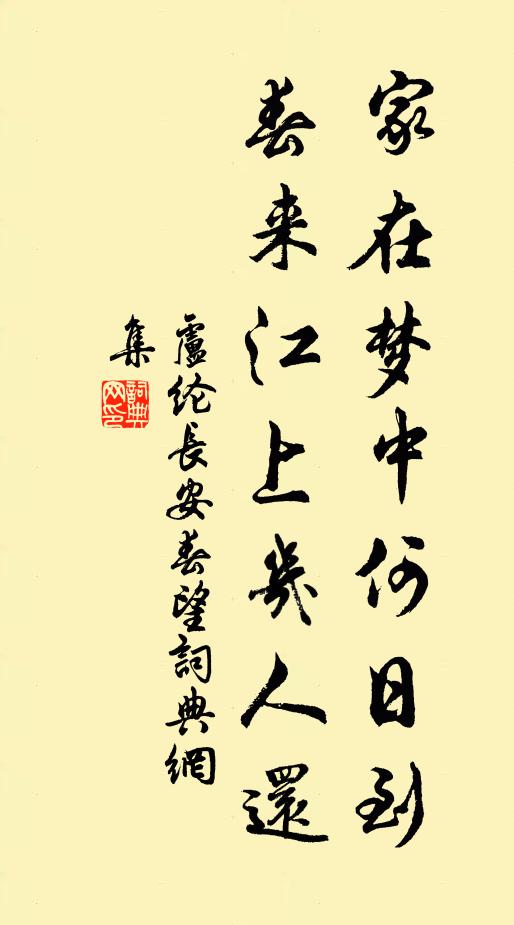 家在梦中何日到
春来江上幾人還
盧纶長安春望詞典網
集
詞典网印